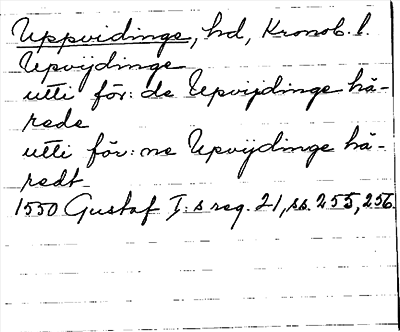 Uppvidinge, hd, Kronob. l.
Upvijdinge
utti för: de Upvijdinge hä-
rede
utti för: ne Upvijdinge hä-
redt
1550 Gustaf I:s reg. 21, ss. 255, 256.